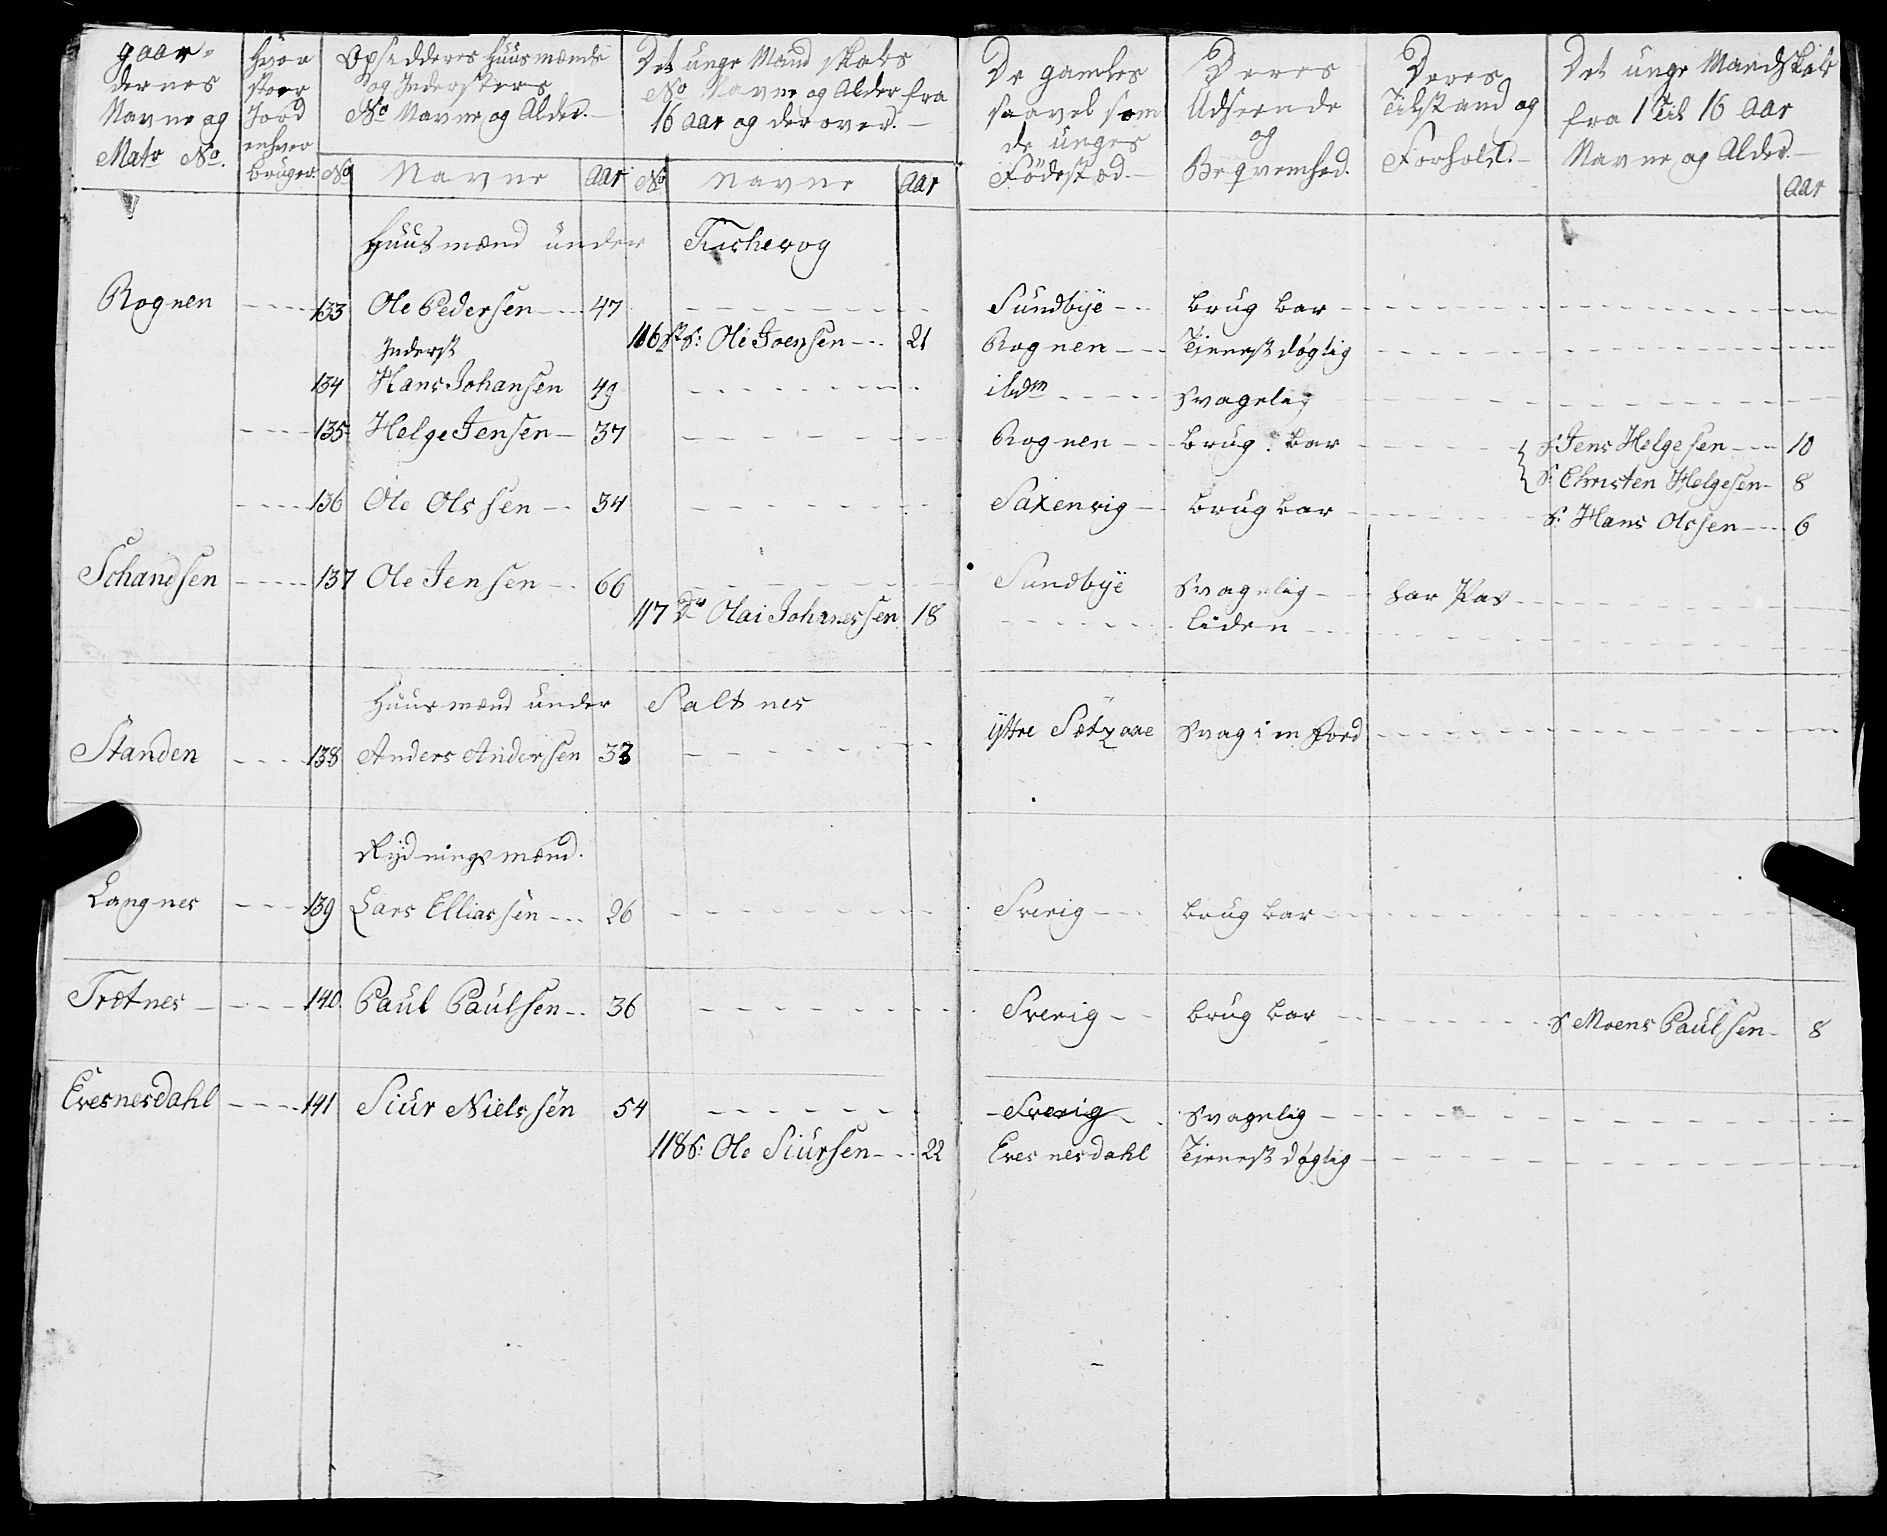 gaar-
dernes
Navne og
Matr No.
Hvor
stoer
Jord
enhver
bruger.
Opsidderes Huusmænds
og Indersters
No Navne og Alder.
Det unge Mandskabs
No Navne og Alder fra
16 aar og derover.
De gamles
saavel som
de unges
Födestæd.
Deres
Udseende
og
Beqvemhed.
Deres
Tilstand og
Forhold.
Det unge Mandskab
fra 1 til 16 aar
Navne og Alder.
No Navne Aar No Navne Aar Aar
Huusmænd under
Rognen 133 Ole Pedersen 47 Sundbye brugbar
116 St S: Ole Joensen 21 Rognen Tienestdøgtig
Inderst
134 Hans Johansen 49 ibdm svagelig
135 Helge Jensen 37 Rognen brugbar S Jens Helgesen 10
S. Christen Helgesen 8
136 Ole Olssen 34 Saxenvig brugbar S: Hans Olssen 6
137 Ole Jensen 66 Sundbye svagelig har Pas
117 Do Olai Johnessen 18 liden
Huusmænd under Saltnes
Standen 138 Anders Andersen 33 yttre svag i en
Rydningsmænd.
Langnes 139 Lars Elliassen 26 Sverig brugbar
Trætnes 140 Paul Paulsen 36 Sverig brugbar S Moens Paulsen 8
Evesnesdahl 141 Siur Nielssen 54 Sverig svagelig
118 S: Ole Siursen 22 Evesnesdahl Tienestdøgtig